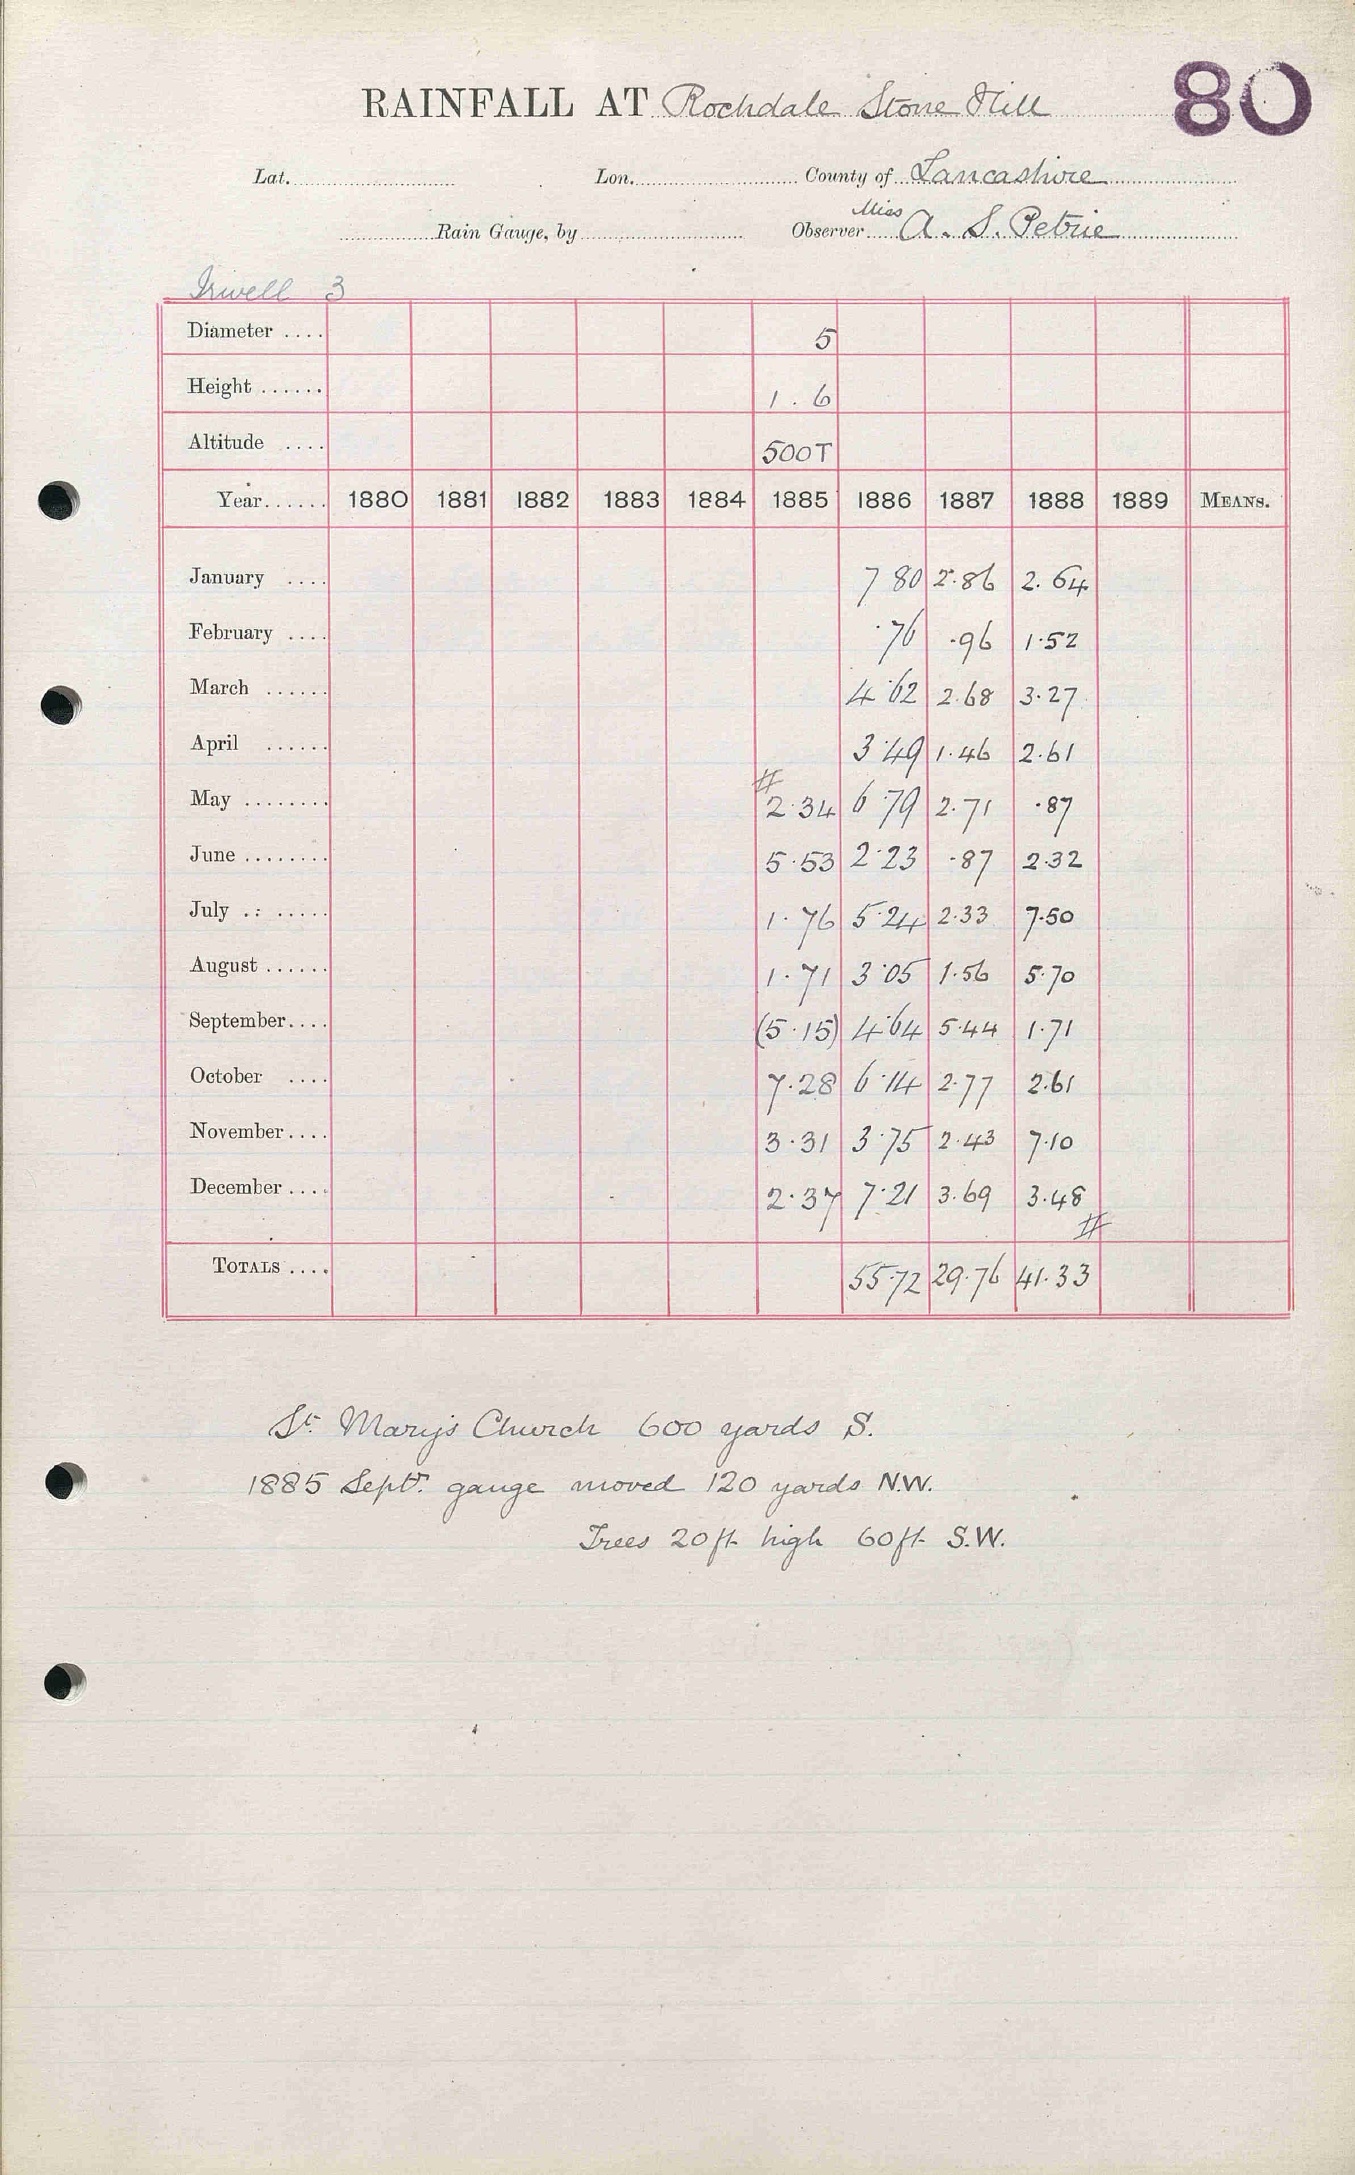 RAINFALL AT Rochdale Stone Hill 80
Lat. Lon. County of Lancashire
Rain Gauge, by Observer Miss A. S. Petrie
Irwell 3
Diameter .... 5
Height ...... 1.6
Altitude .... 500T
Year...... 1880 1881 1882 1883 1884 1885 1886 1887 1888 1889 MEANS.
January .... 7 80 2.86 2.64
February .... .76 .96 1.52
March ...... 4.62 2.68 3.27
April ...... 3.49 1.46 2.61
May ........ # 2.34 6.79 2.71 .87
June ........ 5.53 2.23 .87 2.32
July .: ..... 1.76 5.24 2.33 7.50
August ...... 1.71 3.05 1.56 5.70
September.... (5.15) 4.64 5.44 1.71
October .... 7.28 6.14 2.77 2.61
November.... 3.31 3.75 2.43 7.10
December .... 2.37 7.21 3.69 3.48 #
TOTALS .... 55.72 29.76 41.33
St. Mary's Church 600 yards S.
1885 Septr. gauge moved 120 yards N.W.
Trees 20ft high 60ft S.W.